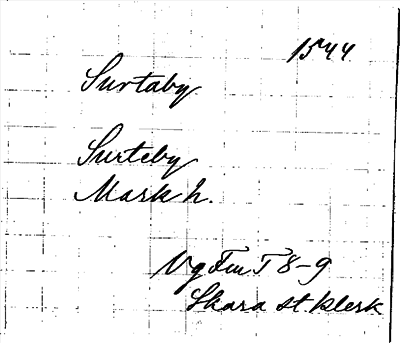 1544
Surtaby
Surteby
Mark h.
Vg Fm T 8-9
Skara st. klerk